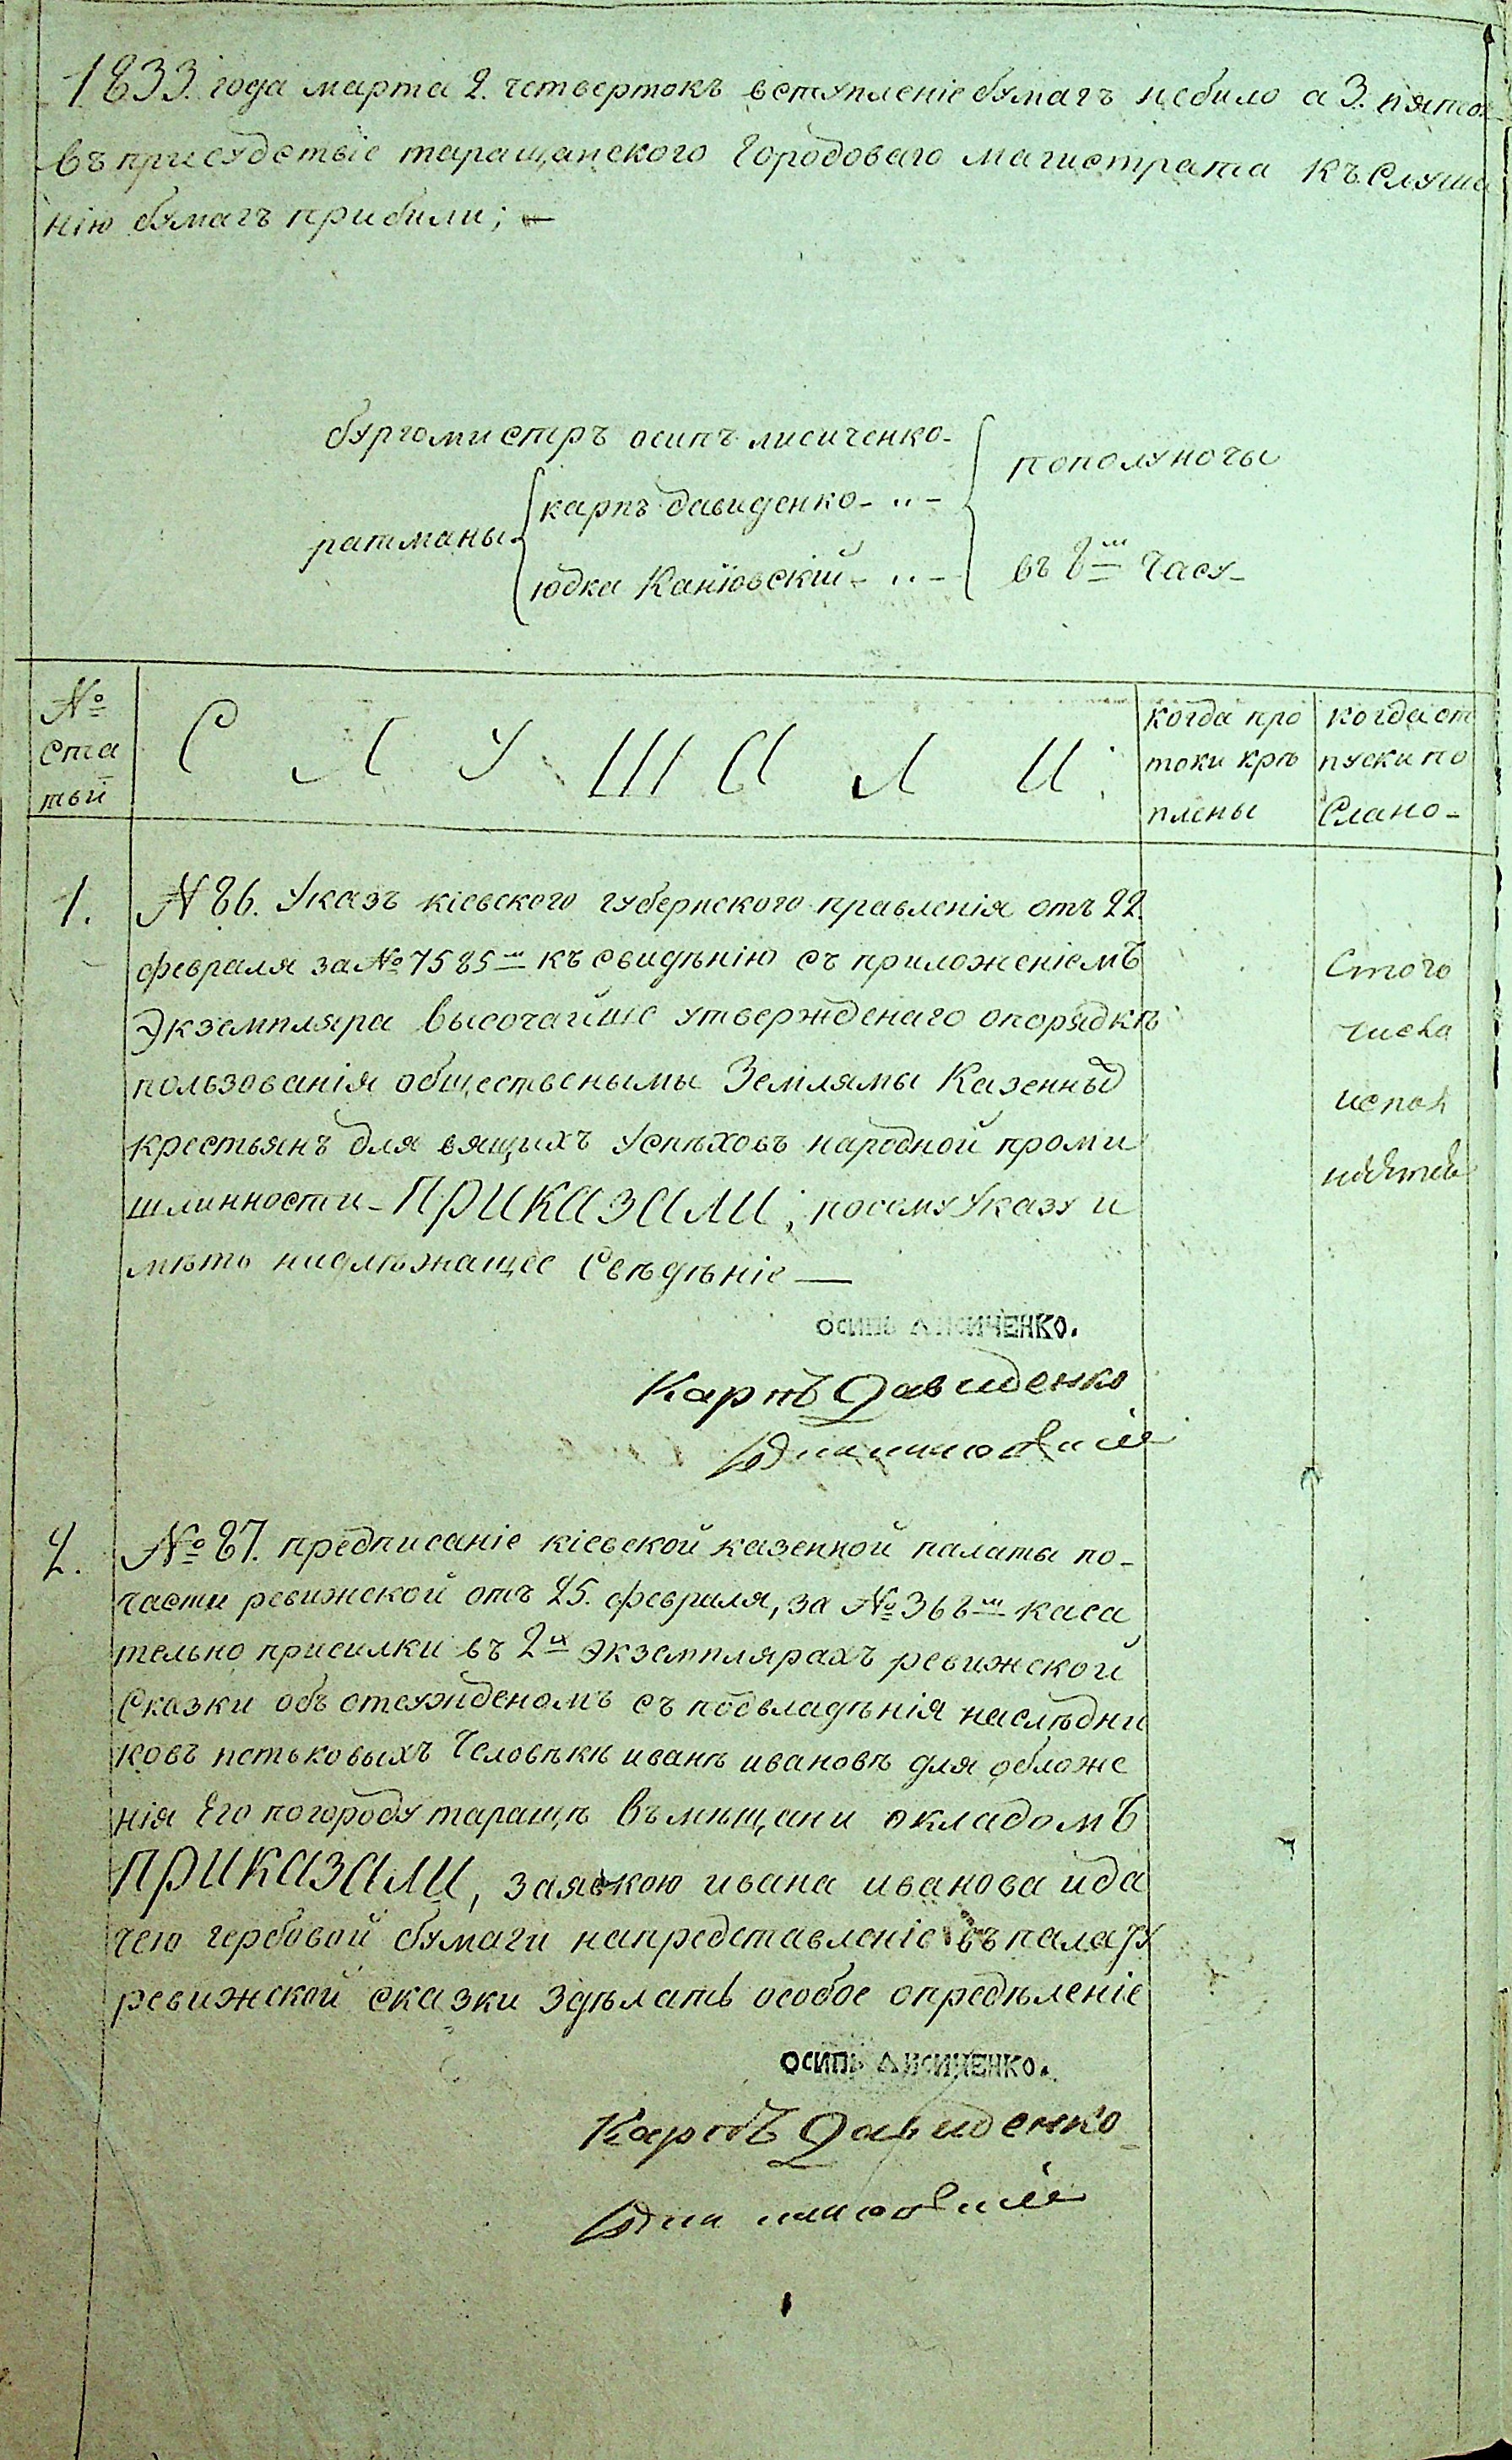 1833. года марта 2. четвертокъ вступленіе бумагъ небило а 3. пяток
въ присудствіе таращанского Городоваго магистрата къ Слуша
нію бумагъ прибили; —
бургомистръ осипъ лисиченко
ратманы
карпъ давиденко
юдка Каніовскій
пополуночы
въ 8 часу
№ Ста тьи
СЛУШАЛИ:
когда про токи крѣ плены
когда от пуски по Слано
1.
№ 86. Указъ кіевского губернского правленія отъ 22
февраля за № 7585 къ свидѣнію съ приложеніемъ
Экземпляра высочайше утвержденаго опорядкѣ
пользованія общественымы Землямы Казенныхъ
крестьянъ для вящихъ Успѣховъ народной проми
шлинности ПРИКАЗАЛИ; посему Указу и
мѣть нидлѣжащее Свѣдѣніе —
Стого
числа
испол
ОСИПЪ ЛИСИЧЕНКО.
Карпъ Давиденко
2.
№ 87. предписаніе кіевской казенной палаты по-
части ревижской отъ 25. февраля, за № 368 каса
тельно присилки въ 2х экземплярахъ ревижской
Сказки объ отсужденомъ съ подвладѣнія наслѣдни
ковъ петьковыхъ Человѣкѣ иванѣ ивановѣ для обложе
нія Его погороду таращѣ въ мѣщани окладомъ
ПРИКАЗАЛИ, заявкою ивана иванова ида
чею гербовой бумаги напредставленіе въ палату
ревижской сказки здѣлать особое опредѣленіе
ОСИПЪ ЛИСИЧЕНКО.
Карпъ Давиденко